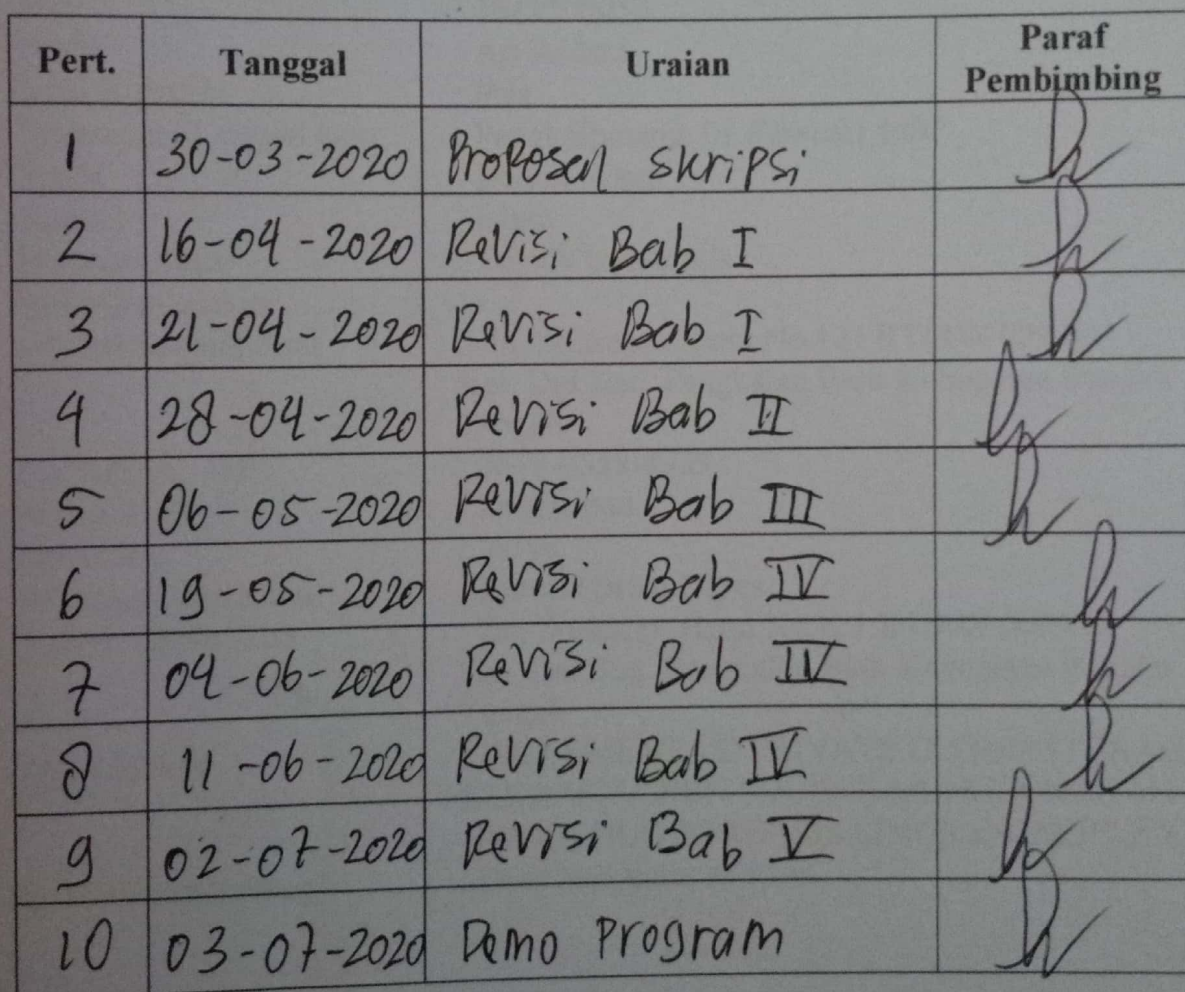 Pert. Tanggal Uraian Paraf Pembimbing
1 30-03-2020 Proposal skripsi
2 16-04-2020 Revisi Bab I
3 21-04-2020 Revisi Bab I
4 28-04-2020 Revisi Bab II
5 06-05-2020 Revisi Bab III
6 19-05-2020 Revisi Bab IV
7 04-06-2020 Revisi Bab IV
8 11-06-2020 Revisi Bab IV
9 02-07-2020 Revisi Bab V
10 03-07-2020 Demo Program